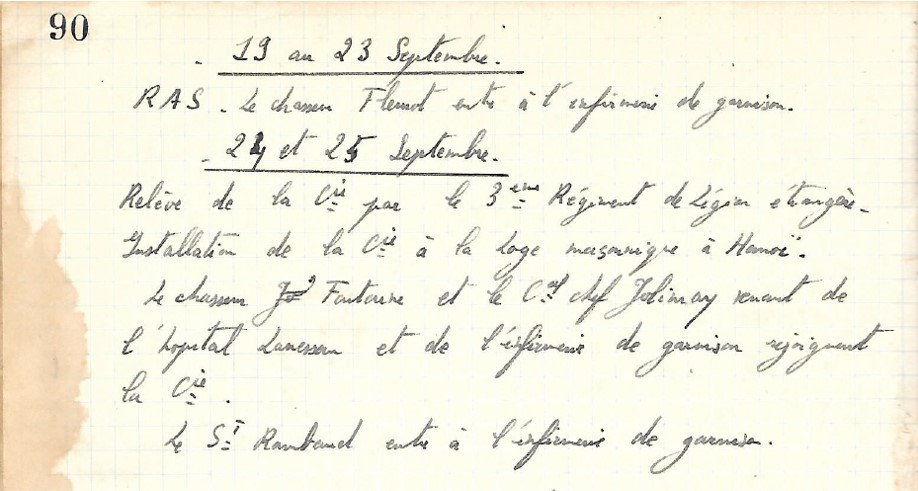 90
- 19 au 23 Septembre.
RAS. Le chasseur Flemot entre à l'infirmerie de garnison.
- 24 et 25 Septembre.
Relève de la Cie par le 3eme Régiment de Légion étrangère.
Installation de la Cie à la Loge maçonnique à Hanoï.
Le chasseur Fontaine et le Cal chef Jolimay venant de
l'hopital Lanessan et de l'infirmerie de garnison rejoignent
la Cie.
Le St Rambaud entre à l'infirmerie de garnison.